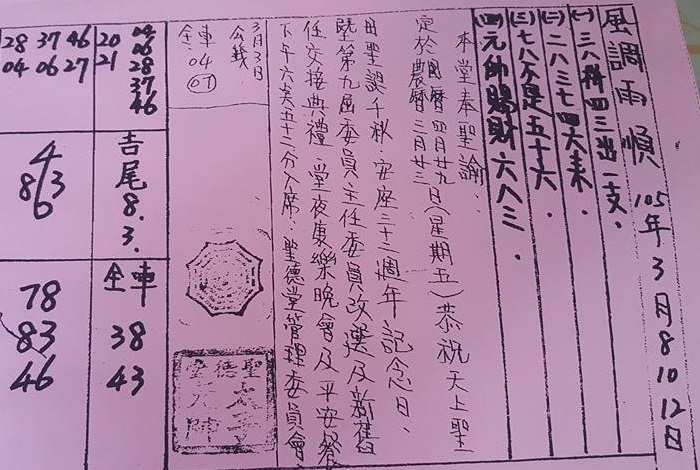 風調雨順 105年3月8 10 12日
(一)三八拼四三出一支.
(二)二八三七四六来.
(三)七八不是五十六.
(四)元帥賜財六八三.
本堂奉聖諭.
定於國曆四月廿九日(星期五)恭祝天上聖
農曆三月廿三
母聖誕千秋.安座三十二週年記念日、
暨第九屆委員主任委員改選及新舊
任交接典禮.當夜康樂晚會及平安餐
下午六点五十二分入席.聖德堂管理委員會
3月3日
公錢
全車 04
07
聖德堂
20 04
21 06
28
37
46
28 37 46
04 06 27
吉尾8.3.
4
8 3
6
全車
38
43
78
83
46